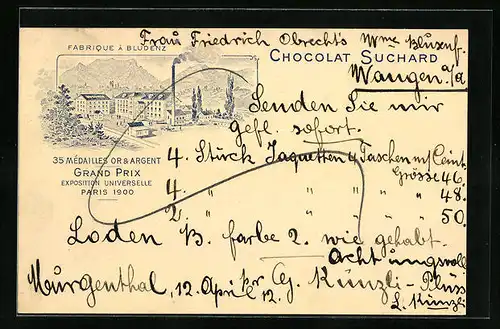 Frau Friedrich Obrecht's Wwe Blusenf.
FABRIQUE À BLUDENZ
CHOCOLAT SUCHARD
Wangen a/a
Senden Sie mir
gefl. sofort.
35 MÉDAILLES OR & ARGENT
GRAND PRIX
EXPOSITION UNIVERSELLE
PARIS 1900
4. Stück Jaquetten 4 Taschen m/ Ceint.
Grösse 46.
4. " " " " 48.
2. " " " " 50.
Loden B. farbe 2. wie gehabt.
Achtungsvoll
Murgenthal, 12. April 12. Künzli-Plüss
L. Künzli